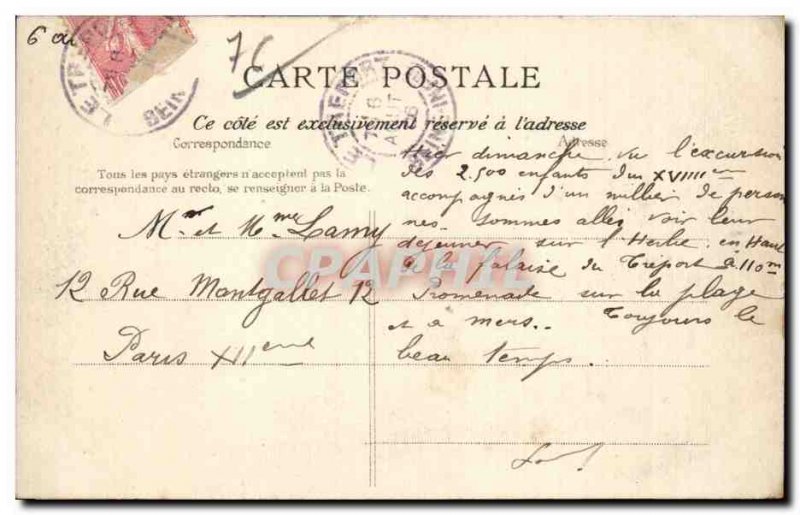 6 
76
CARTE POSTALE
Ce côté est exclusivement réservé à l'adresse
Correspondance
Adresse
Tous les pays étrangers n'acceptent pas la
correspondance au recto, se renseigner à la Poste.
LE TREPORT
SEIN
LE TREPORT
6
AOUT
Mr et Mme Lamy
12 Rue Montgallet 12
Paris XIIeme
Hier dimanche vu l'excursion
des 2.500 enfants du XVIIIIe
accompagnés d'un millier de person
nes. sommes allés voir leur
déjeuner sur l'Herbe, en Haut
de la falaise du Tréport à 110m
Promenade sur la plage
et a mers.. Toujours le
beau temps.
CPAPHIL